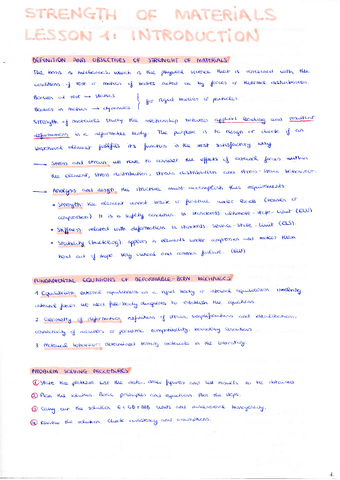 STRENGTH OF MATERIALS
LESSON 1: INTRODUCTION
DEFINITION AND OBJECTIVES OF STRENGHT OF MATERIALS
The basis is mechanics, which is the physical science that is concerned with the
conditions of rest or motion of bodies acted on by forces or thermal disturbances.
Bodies at rest → statics
Bodies in motion → dynamics
for rigid bodies or particles
Strength of materials study the relationship between applied loading and resultant
deformations in a deformable body. The purpose is to design or check if an
structural element fulfills its function in the most satisfactory way.
→ Stress and strain: we have to consider the effects of external forces within
the element, stress distribution, strain distribution and stress-strain behaviour.
→ Analysis and design: the structure must accomplish this requirements:
• Strength: the element cannot break or fracture under loads (tension or
compression). It is a safety condition to standards ultimate-state-limit (ELU)
• Stiffness: related with deformations to standards service-state-limit (ELS)
• Stability (buckling): appears in elements under compression and makes them
bent out of shape. Very critical and causes failure. (ELU)
FUNDAMENTAL EQUATIONS OF DEFORMABLE-BODY MECHANICS
1. Equilibrium: external equilibrium as a rigid body or internal equilibrium
internal forces. We need free-body diagrams to establish the equations.
2. Geometry of deformation: definition of strain, simplifications and idealizations,
connectivity of members or geometric compatibility, boundary conditions.
3. Material behaviour: determined testing materials in the laboratory.
PROBLEM SOLVING PROCEDURES
1 State the problem: list the data, draw figures and list results to be obtained.
2 Plan the solution: Basic principles and equations. Plan the steps.
3 Carry out the solution: units and dimensional homogeneity.
4 Review the solution. Check